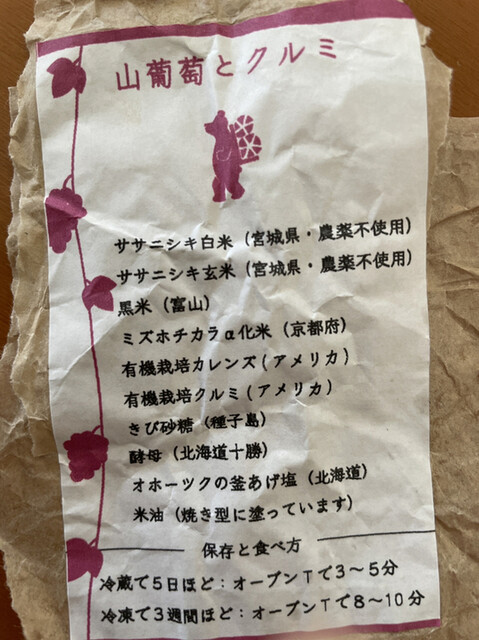 山葡萄とクルミ
ササニシキ白米（宮城県・農薬不使用）
ササニシキ玄米（宮城県・農薬不使用）
黒米（富山）
ミズホチカラα化米（京都府）
有機栽培カレンズ(アメリカ）
有機栽培クルミ(アメリカ）
きび砂糖（種子島）
酵母（北海道十勝）
オホーツクの釜あげ塩（北海道）
米油（焼き型に塗っています）
保存と食べ方
冷蔵で5日ほど：オーブンTで3〜5分
冷凍で3週間ほど：オーブンTで8〜10分